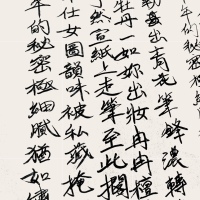 勒出青花筆鋒濃轉
牡丹一如妳出妝冉冉檀
了然宣紙上走筆至此擱
仕女圖韻味被私藏掩
年的秘密極細膩猶如繡